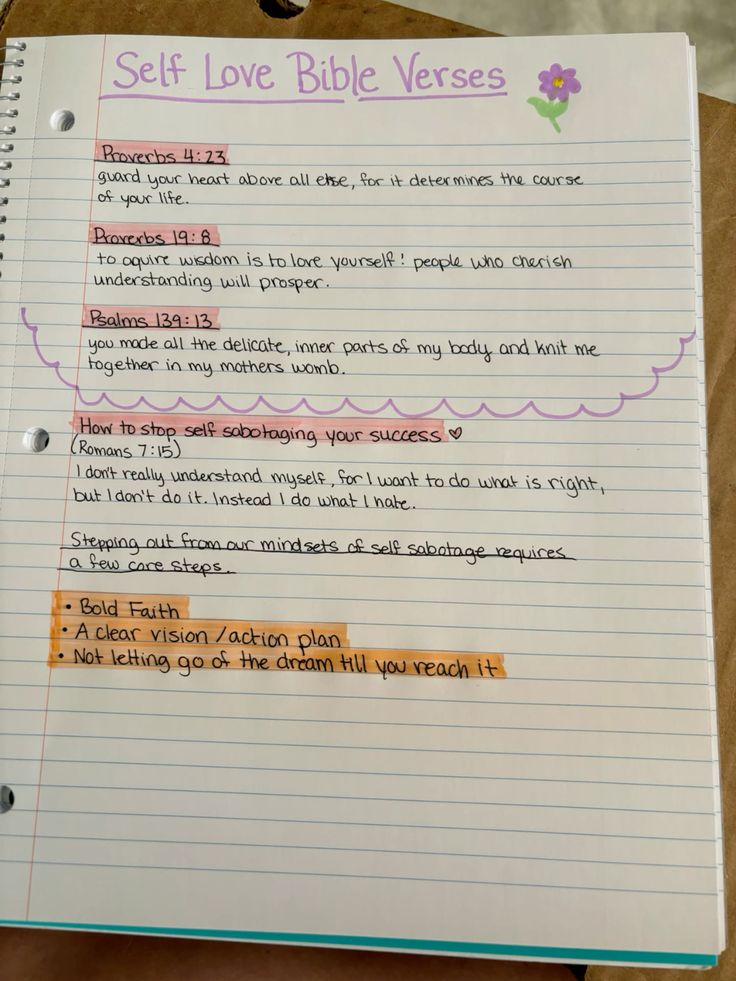 Self Love Bible Verses
Proverbs 4:23
guard your heart above all else, for it determines the course
of your life.
Proverbs 19:8
to aquire wisdom is to love yourself! people who cherish
understanding will prosper.
Psalms 139:13
you made all the delicate, inner parts of my body and knit me
together in my mothers womb.
How to stop self sabotaging your success ♡
(Romans 7:15)
I don't really understand myself, for I want to do what is right,
but I don't do it. Instead I do what I hate.
Stepping out from our mindsets of self sabotage requires
a few core steps.
• Bold Faith
• A clear vision / action plan
• Not letting go of the dream till you reach it